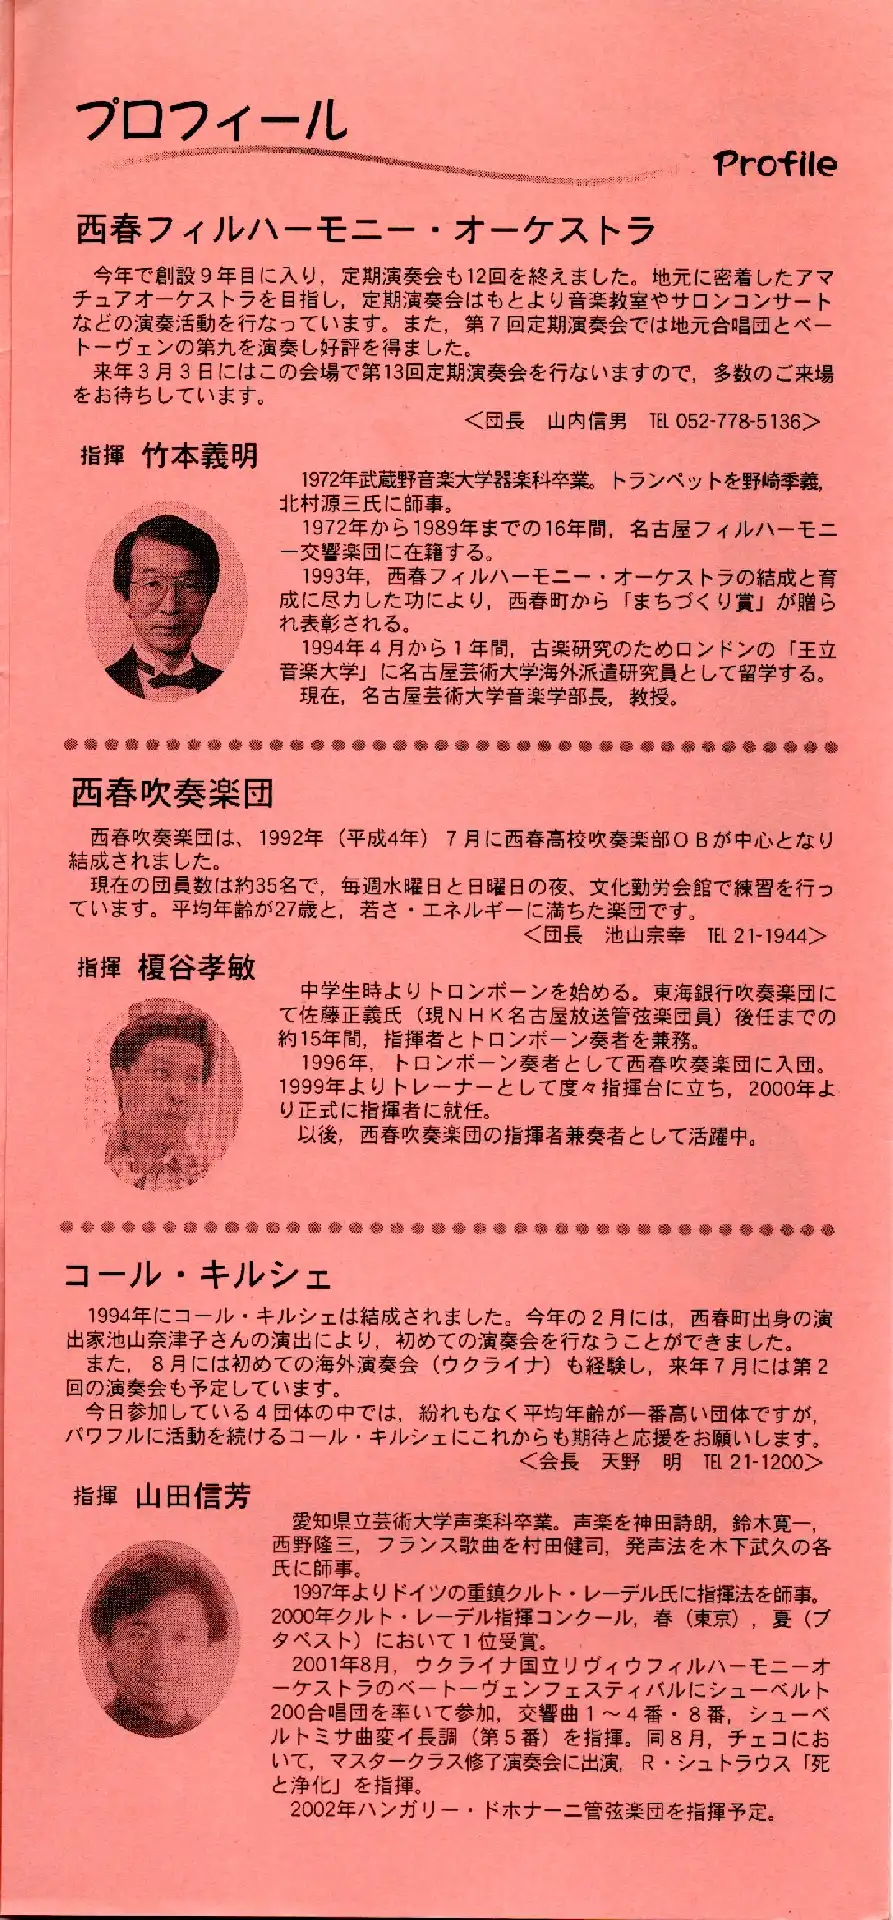 プロフィール
Profile
西春フィルハーモニー・オーケストラ
今年で創設9年目に入り，定期演奏会も12回を終えました。地元に密着したアマ
チュアオーケストラを目指し，定期演奏会はもとより音楽教室やサロンコンサート
などの演奏活動を行なっています。また，第7回定期演奏会では地元合唱団とベー
トーヴェンの第九を演奏し好評を得ました。
来年3月3日にはこの会場で第13回定期演奏会を行ないますので，多数のご来場
をお待ちしています。
＜団長　山内信男　TEL 052-778-5136＞
指揮 竹本義明
1972年武蔵野音楽大学器楽科卒業。トランペットを野崎季義，
北村源三氏に師事。
1972年から1989年までの16年間，名古屋フィルハーモニ
ー交響楽団に在籍する。
1993年，西春フィルハーモニー・オーケストラの結成と育
成に尽力した功により，西春町から「まちづくり賞」が贈ら
れ表彰される。
1994年4月から1年間，古楽研究のためロンドンの「王立
音楽大学」に名古屋芸術大学海外派遣研究員として留学する。
現在，名古屋芸術大学音楽学部長，教授。
西春吹奏楽団
西春吹奏楽団は、1992年（平成4年）7月に西春高校吹奏楽部ＯＢが中心となり
結成されました。
現在の団員数は約35名で，毎週水曜日と日曜日の夜、文化勤労会館で練習を行っ
ています。平均年齢が27歳と，若さ・エネルギーに満ちた楽団です。
＜団長　池山宗幸　TEL 21-1944＞
指揮 榎谷孝敏
中学生時よりトロンボーンを始める。東海銀行吹奏楽団に
て佐藤正義氏（現ＮＨＫ名古屋放送管弦楽団員）後任までの
約15年間，指揮者とトロンボーン奏者を兼務。
1996年，トロンボーン奏者として西春吹奏楽団に入団。
1999年よりトレーナーとして度々指揮台に立ち，2000年よ
り正式に指揮者に就任。
以後，西春吹奏楽団の指揮者兼奏者として活躍中。
コール・キルシェ
1994年にコール・キルシェは結成されました。今年の2月には，西春町出身の演
出家池山奈津子さんの演出により，初めての演奏会を行なうことができました。
また，8月には初めての海外演奏会（ウクライナ）も経験し，来年7月には第2
回の演奏会も予定しています。
今日参加している4団体の中では，紛れもなく平均年齢が一番高い団体ですが，
パワフルに活動を続けるコール・キルシェにこれからも期待と応援をお願いします。
＜会長　天野　明　TEL 21-1200＞
指揮 山田信芳
愛知県立芸術大学声楽科卒業。声楽を神田詩朗，鈴木寛一，
西野隆三，フランス歌曲を村田健司，発声法を木下武久の各
氏に師事。
1997年よりドイツの重鎮クルト・レーデル氏に指揮法を師事。
2000年クルト・レーデル指揮コンクール，春（東京），夏（ブ
タペスト）において1位受賞。
2001年8月，ウクライナ国立リヴィウフィルハーモニーオ
ーケストラのベートーヴェンフェスティバルにシューベルト
200合唱団を率いて参加，交響曲1～4番・8番，シューベ
ルトミサ曲変イ長調（第5番）を指揮。同8月，チェコにお
いて，マスタークラス修了演奏会に出演，R・シュトラウス「死
と浄化」を指揮。
2002年ハンガリー・ドホナーニ管弦楽団を指揮予定。